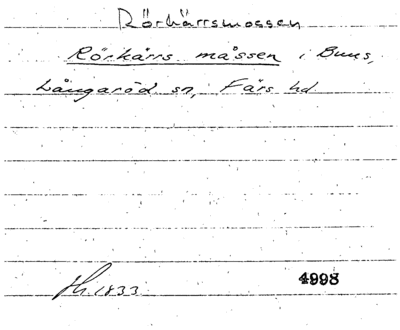 Rörkärrsmossen
Rörkärrs måssen i Buus,
Långaröd sn, Färs hd
1833 4998